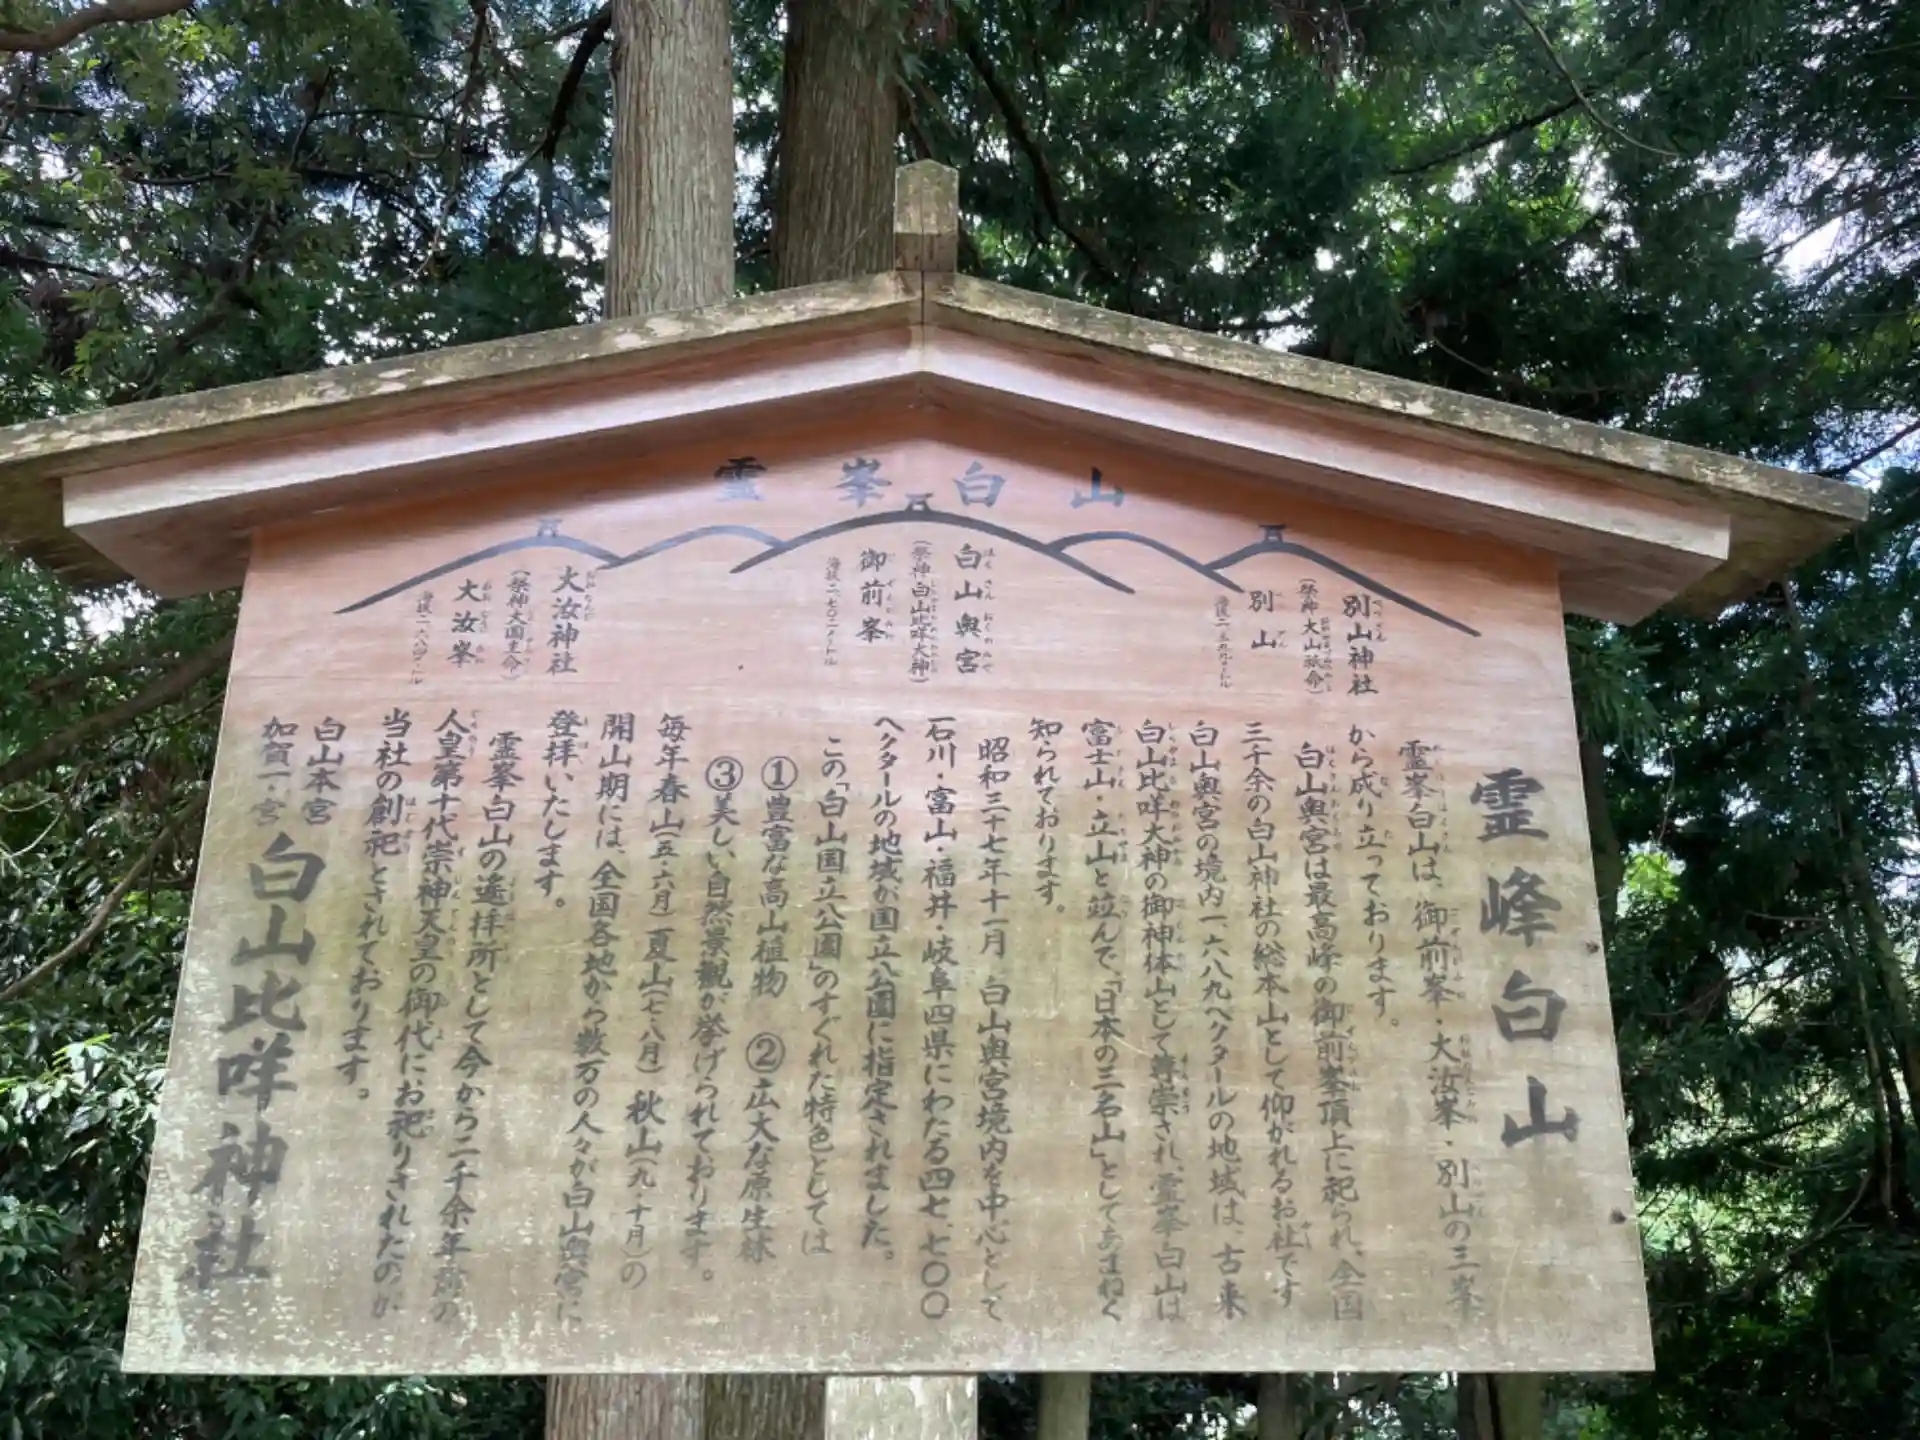 霊峯白山
別山神社
(祭神大山祇命)
別山
海抜二、三九九メートル
白山奥宮
(祭神白山比咩大神)
御前峯
海抜二、七〇二メートル
大汝神社
(祭神大国主命)
大汝峯
海抜二、六八四メートル
霊峰白山
霊峯白山は、御前峯・大汝峯・別山の三峯
から成り立っております。
白山奥宮は最高峰の御前峯頂上に祀られ、全国
三千余の白山神社の総本山として仰がれるお社です
白山奥宮の境内一、六八九ヘクタールの地域は、古来
白山比咩大神の御神体山として尊崇され、霊峯白山は
富士山・立山と竝んで、「日本の三名山」としてあまねく
知られております。
昭和三十七年十一月 白山奥宮境内を中心として
石川・富山・福井・岐阜四県にわたる四七、七〇〇
ヘクタールの地域が国立公園に指定されました。
この「白山国立公園」のすぐれた特色としては
①豊富な高山植物 ②広大な原生林
③美しい自然景観が挙げられております。
毎年春山(五・六月)夏山(七・八月) 秋山(九・十月)の
開山期には、全国各地から数万の人々が白山奥宮に
登拝いたします。
霊峯白山の遙拝所として今から二千余年前の
人皇第十代崇神天皇の御代にお祀りされたのが
当社の創祀とされております。
白山本宮
加賀一ノ宮
白山比咩神社